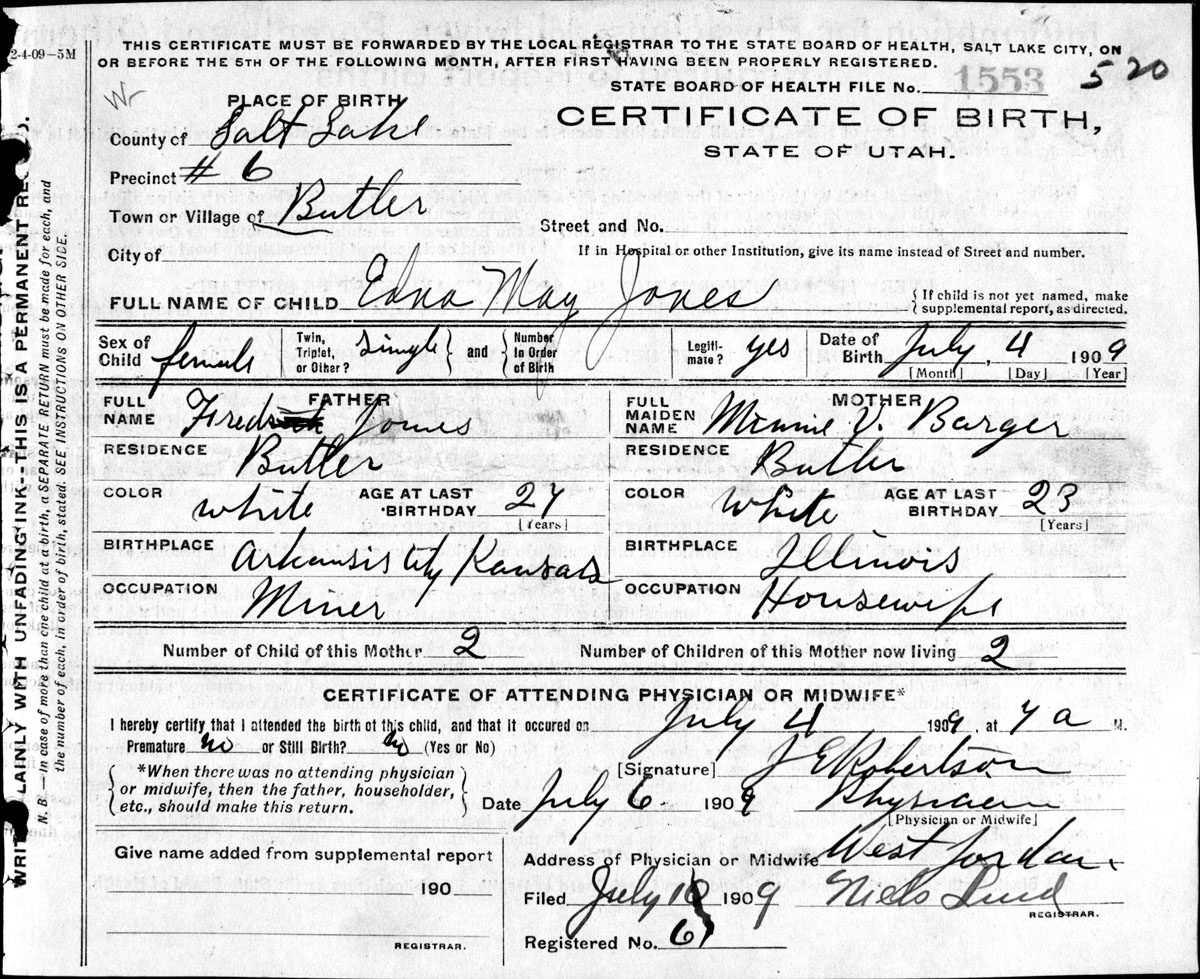 2-4-09—5M
THIS CERTIFICATE MUST BE FORWARDED BY THE LOCAL REGISTRAR TO THE STATE BOARD OF HEALTH, SALT LAKE CITY, ON
OR BEFORE THE 5TH OF THE FOLLOWING MONTH, AFTER FIRST HAVING BEEN PROPERLY REGISTERED.
STATE BOARD OF HEALTH FILE No. 1553 520
PLACE OF BIRTH
CERTIFICATE OF BIRTH,
STATE OF UTAH.
County of Salt Lake
Precinct # 6
Town or Village of Butler
Street and No.
City of
If in Hospital or other Institution, give its name instead of Street and number.
FULL NAME OF CHILD Edna May Jones
{ If child is not yet named, make supplemental report, as directed.
Sex of Child female
Twin, Triplet, or Other? Single } and { Number In Order of Birth
Legiti-mate? yes
Date of Birth July, 4 1909
[Month] [Day] [Year]
FATHER
FULL NAME Fred Jones
RESIDENCE Butler
COLOR white AGE AT LAST BIRTHDAY 27
[Years]
BIRTHPLACE Arkansis City Kansas
OCCUPATION Miner
MOTHER
FULL MAIDEN NAME Minnie V. Barger
RESIDENCE Butler
COLOR white AGE AT LAST BIRTHDAY 23
[Years]
BIRTHPLACE Illinois
OCCUPATION Housewife
Number of Child of this Mother 2 Number of Children of this Mother now living 2
CERTIFICATE OF ATTENDING PHYSICIAN OR MIDWIFE*
I hereby certify that I attended the birth of this child, and that it occured on July 4 1909, at 7 a M.
Premature no or Still Birth? no (Yes or No)
{ *When there was no attending physician
or midwife, then the father, householder,
etc., should make this return. }
[Signature] J E Robertson
Date July 6 1909 Physician
[Physician or Midwife]
Give name added from supplemental report
190
REGISTRAR.
Address of Physician or Midwife West Jordan
Filed July 1909 Niels Lind
REGISTRAR.
Registered No. 6
LAINLY WITH UNFADING INK--THIS IS A PERMANENT
N. B.—In case of more than one child at a birth, a SEPARATE RETURN must be made for each, and
the number of each, in order of birth, stated. SEE INSTRUCTIONS ON OTHER SIDE.